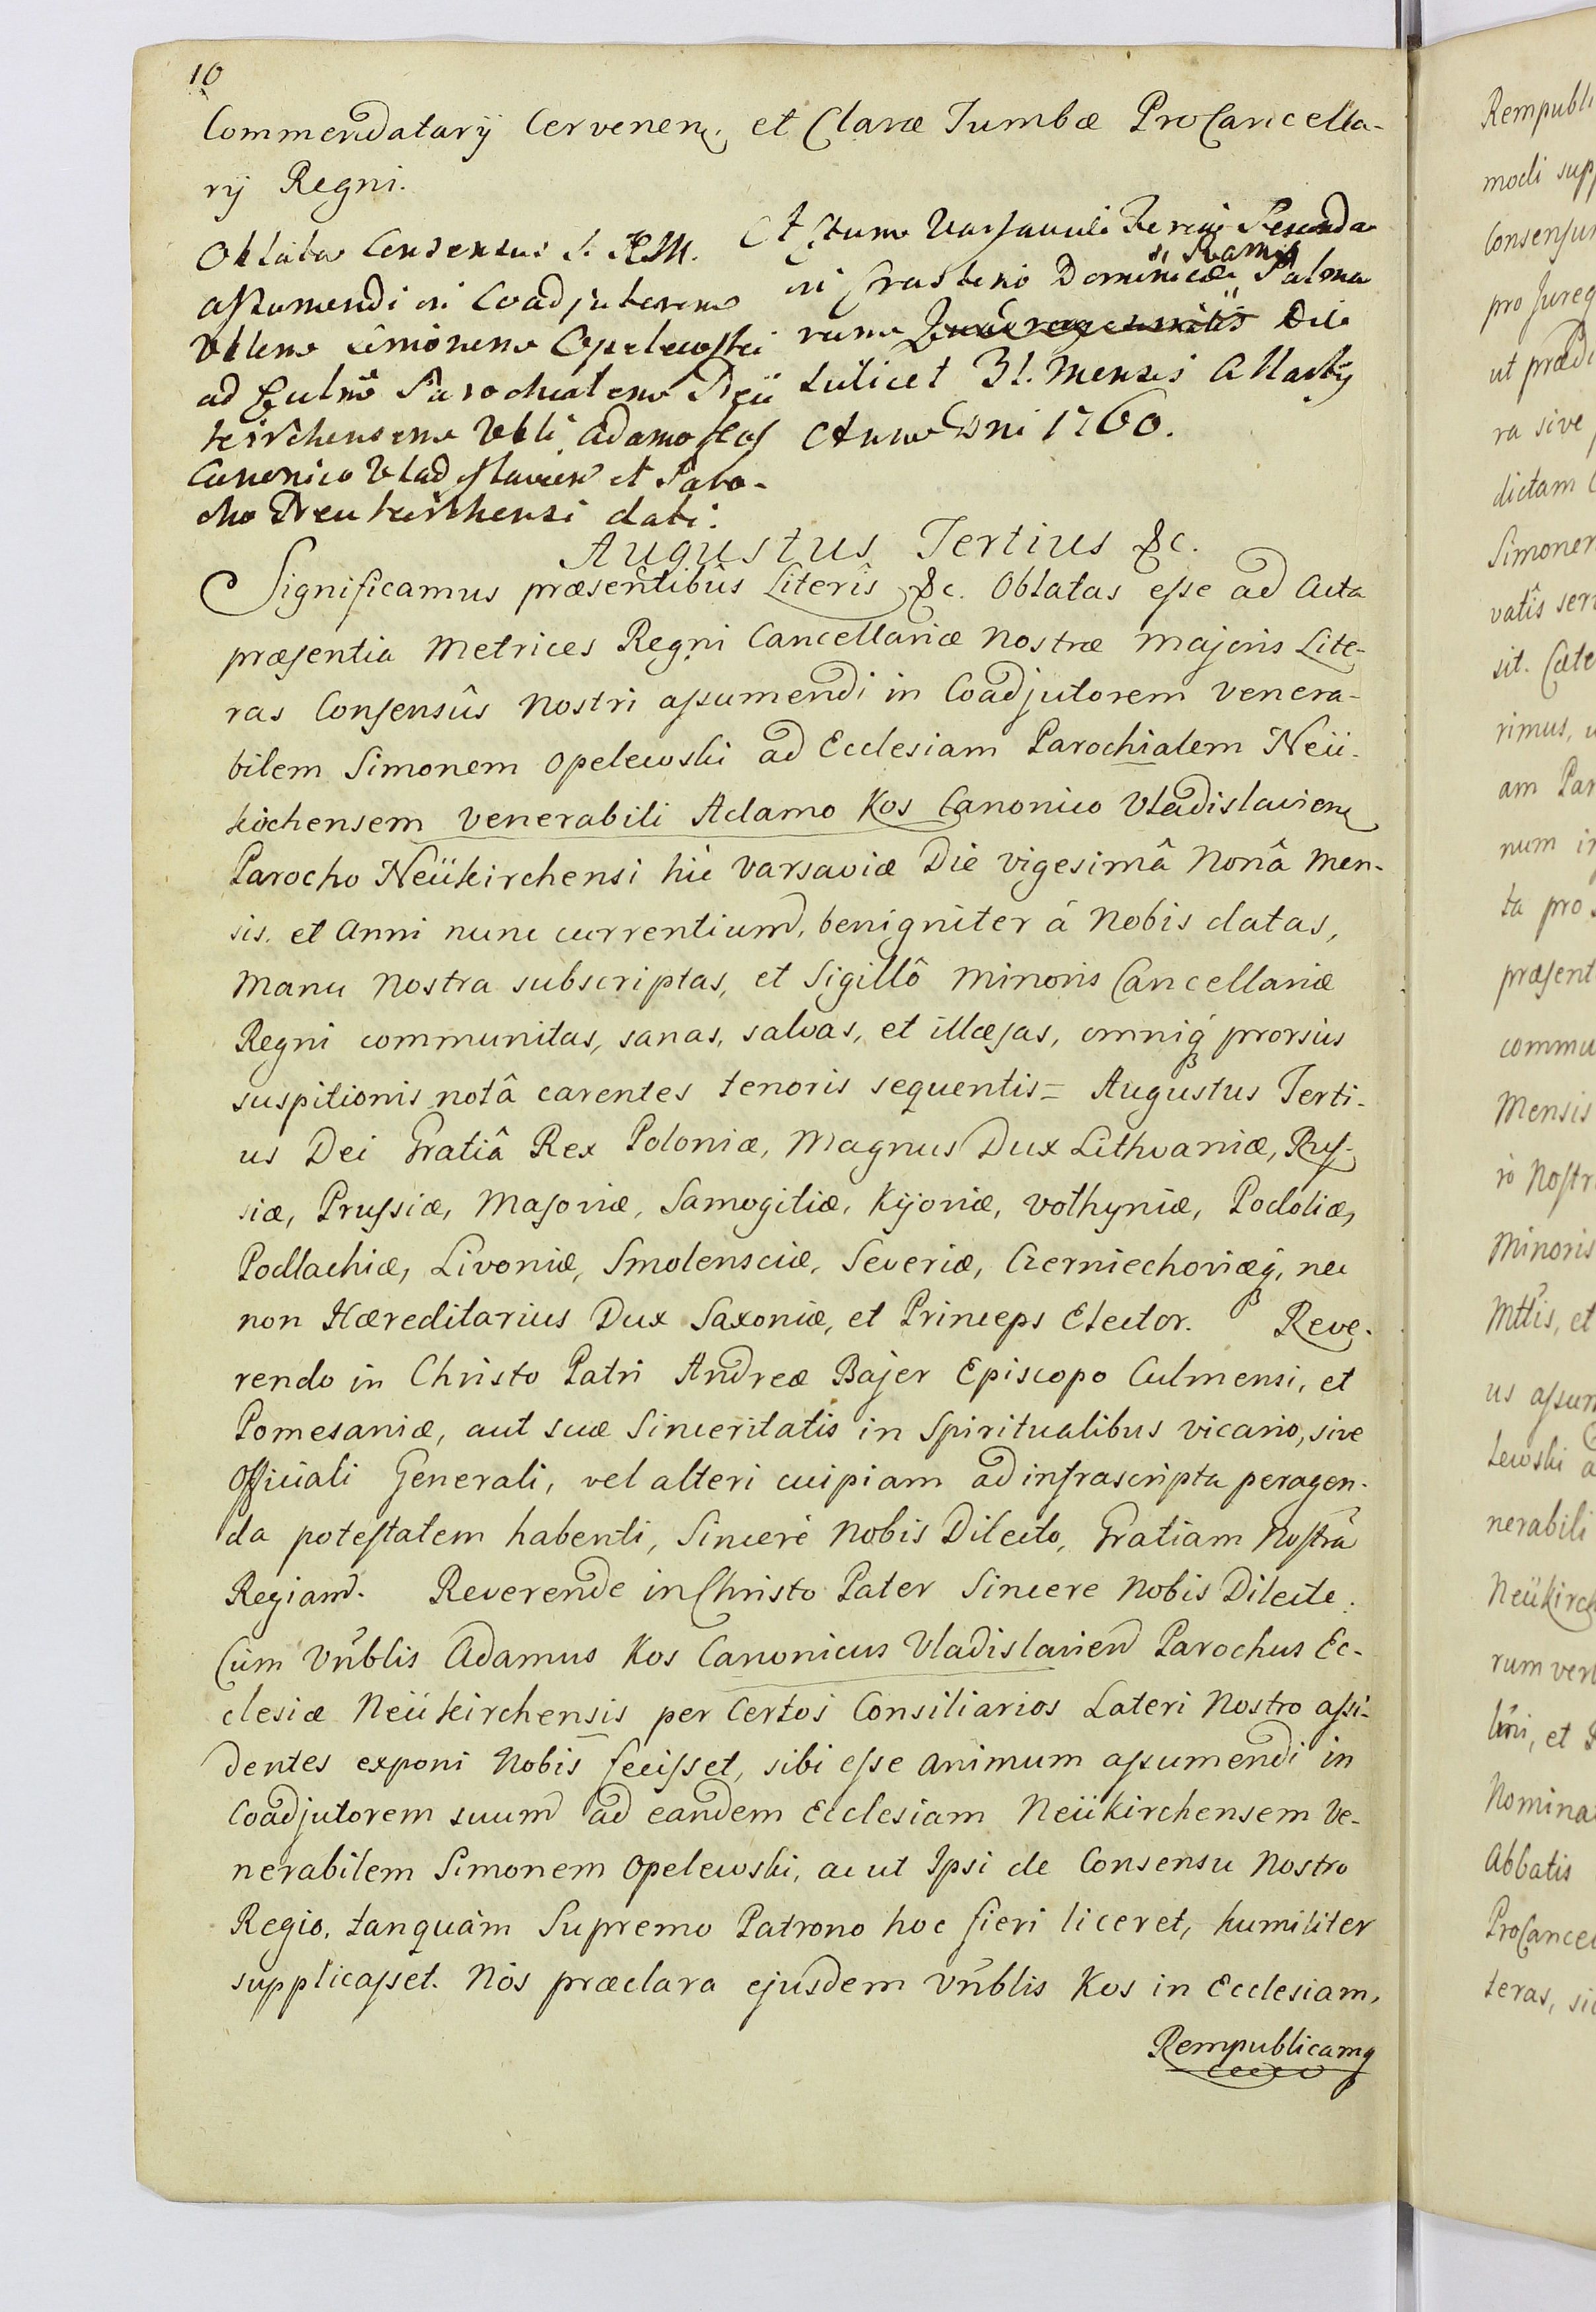 10
Commendatarij Cervenen. et Claræ Tumbæ ProCancella-
rij Regni.
Oblata Consensus S. R. M.
assumendi in Coadjutorem
Vblem Simonem Opelewski
ad Ecclm̃ Parochialem Neü
kirchensem Vbli Adamo Kos
Canonico Vladislavien et Paro-
cho Neukirchensi dati.
Actum Varsaviæ Feria Secunda
in Crastino Dominicæ Palma
rum Die
scilicet 31. Mensis Martij
Anno Dni 1760.
Augustus Tertius &c.
Significamus præsentibûs Literîs &c. Oblatas esse ad Acta
præsentia Metrices Regni Cancellariæ Nostræ Majoris Lite-
ras Consensûs Nostri assumendi in Coadjutorem Venera-
bilem Simonem Opelewski ad Ecclesiam Parochialem Neü-
kirchensem Venerabili Adamo Kos Canonico Vladislavien
Parocho Neükirchensi hìc Varsaviæ Die Vigesimâ Nonâ Men-
sis. et Anni nunc currentium, benigniter à Nobis datas,
Manu Nostra subscriptas, et Sigillô Minoris Cancellariæ
Regni communitas, sanas, salvas, et illæsas, omniq́ prorsùs
suspitionis notâ carentes tenoris sequentis = Augustus Terti-
us Dei Gratiâ Rex Poloniæ, Magnus Dux Lithvaniæ, Rus-
siæ, Prussiæ, Masoviæ, Samogitiæ, Kijoviæ, Volhyniæ, Podoliæ,
Podlachiæ, Livoniæ, Smolensciæ, Severiæ, Czerniechoviæq́, nec
non Hæreditarius Dux Saxoniæ, et Princeps Elector. Reve-
rendo in Christo Patri Andreæ Bajer Episcopo Culmensi, et
Pomesaniæ, aut suæ Sinceritatis in Spiritualibus Vicario, sive
Officiali Generali, vel alteri cuipiam ad infrascripta peragen-
da potestatem habenti, Sincerè Nobis Dilecto, Gratiam Nostrã
Regiam. Reverende in Christo Pater Sincere Nobis Dilecte.
Cùm Vñblis Adamus Kos Canonicus Vladislavien Parochus Ec-
clesiæ Neükirchensis per Certos Consiliarios Lateri Nostro assi-
dentes exponi Nobis fecisset, sibi esse animum assumendi in
Coadjutorem suum ad eandem Ecclesiam Neükirchensem Ve-
nerabilem Simonem Opelewski, ac ut Ipsi de Consensu Nostro
Regio, tanquàm Supremo Patrono hoc fieri liceret, humiliter
supplicasset. Nos præclara ejusdem Vñblis Kos in Ecclesiam,
Rempublicamq
Rempubli
modi supp
Consensum
pro Jureq
ut præd
ra sive
dictam
Simonem
vatîs ser
sit. Cæte
rimus, u
am Par
num in
ta pro
præsent
commu
Mensis
Nostr
Minoris
Mttis, et
us assum
lewski a
nerabili
Neükirch
rum ven
et
Nomina
Abbatis
ProCancel
teras, si